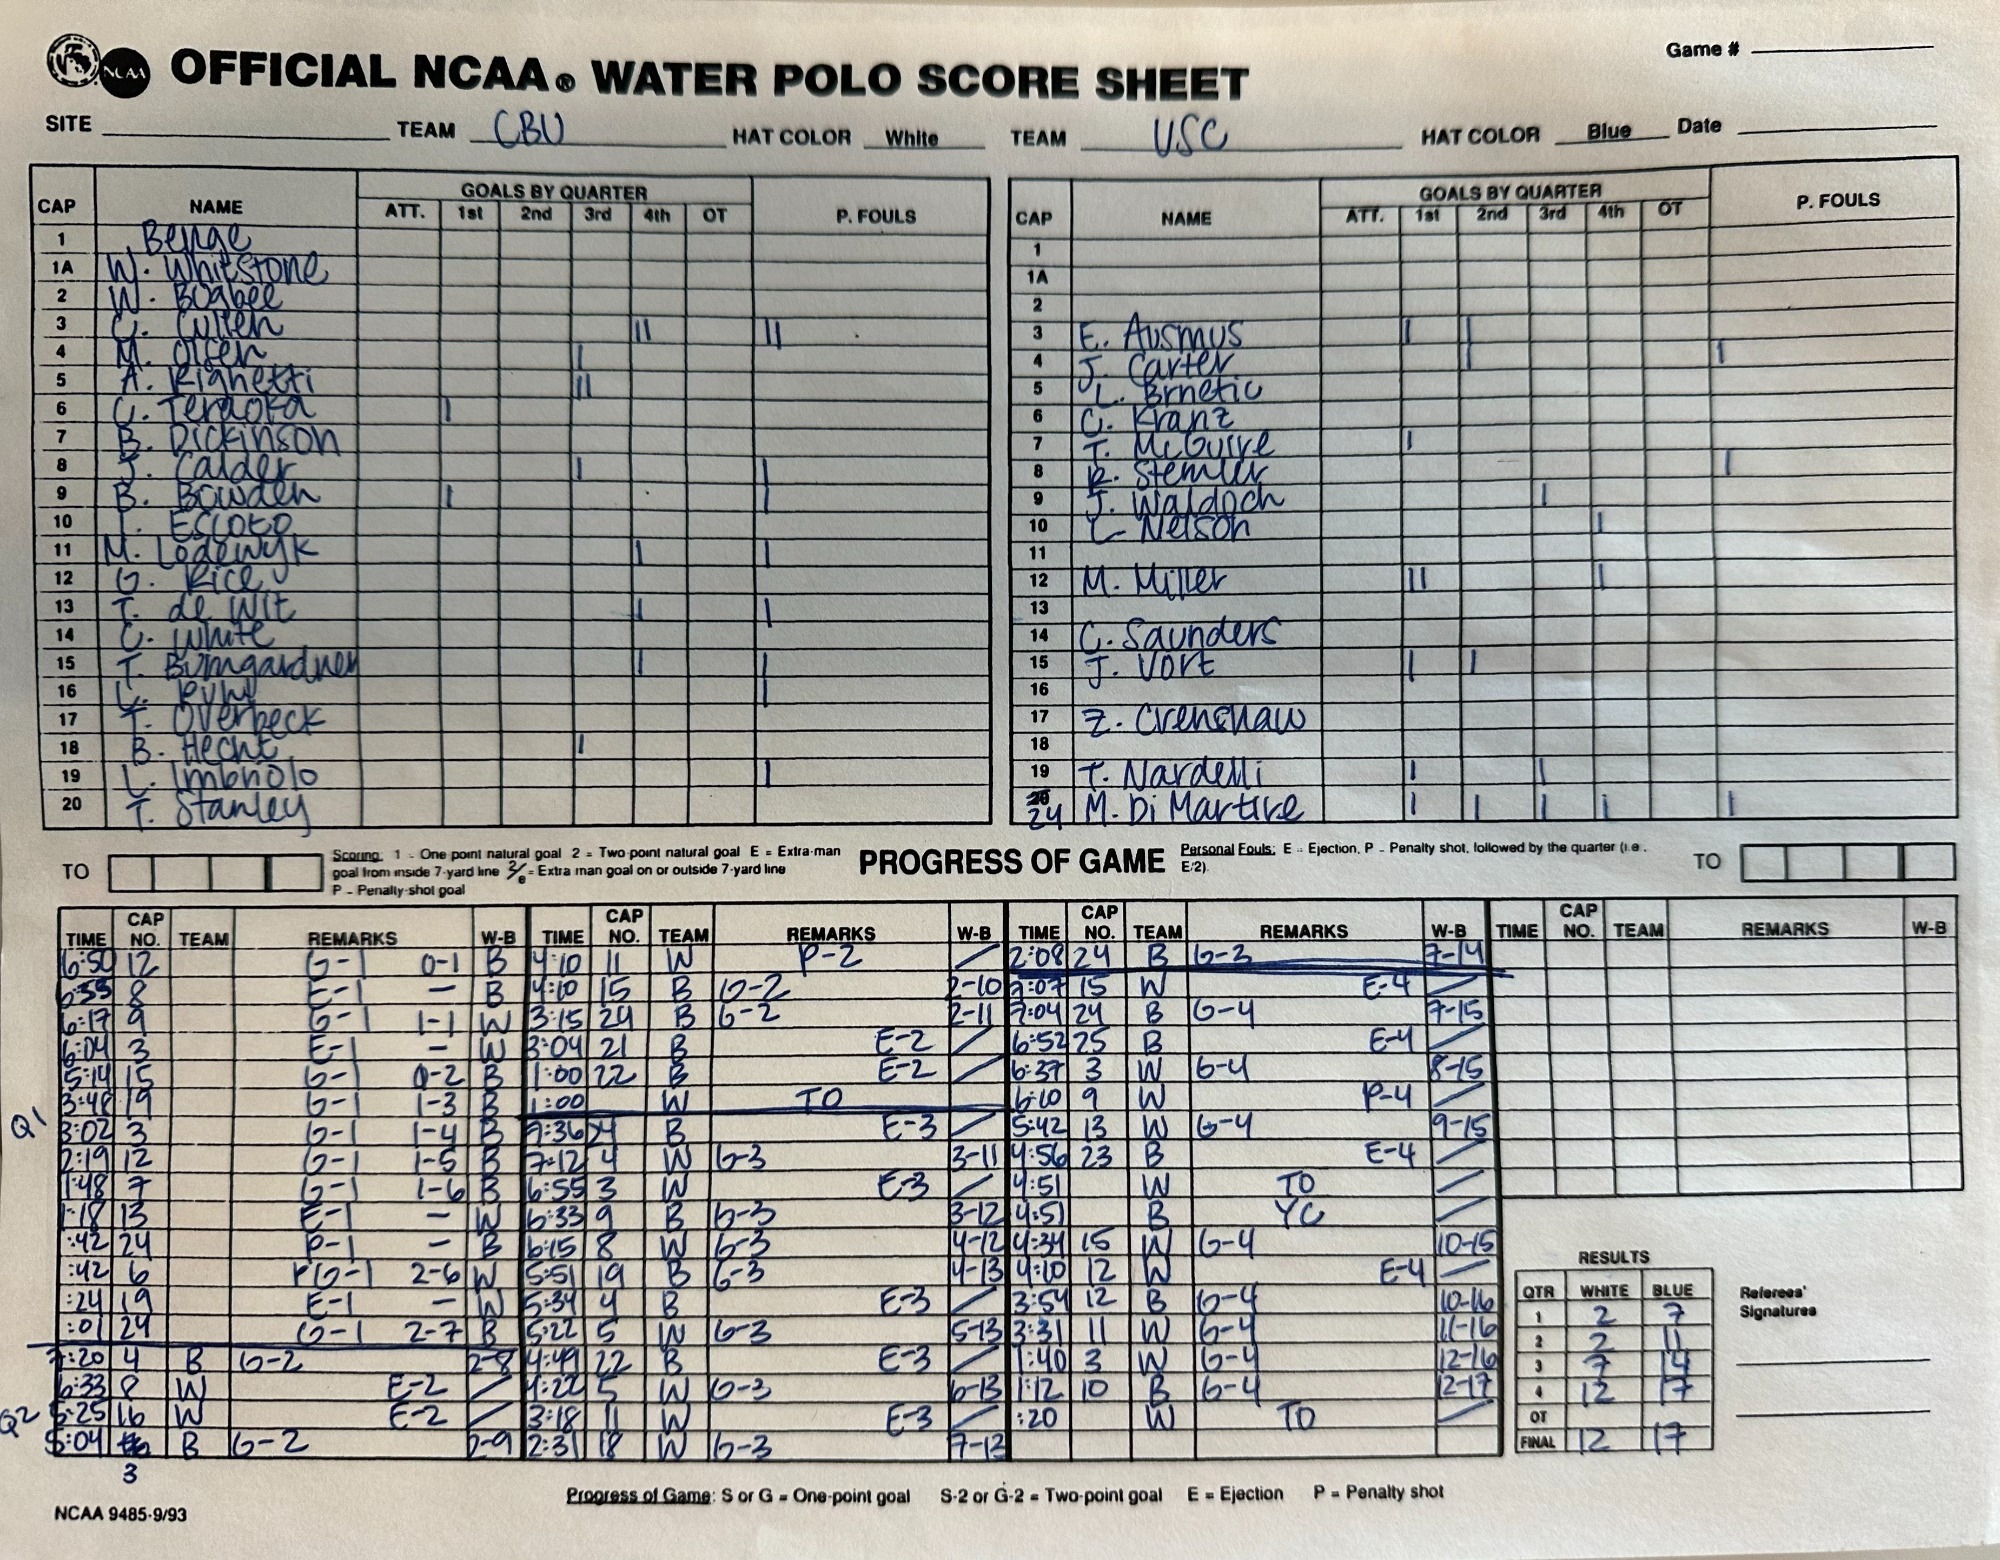 NCAA OFFICIAL NCAA® WATER POLO SCORE SHEET
Game #
SITE TEAM CBU HAT COLOR White TEAM USC HAT COLOR Blue Date
CAP NAME GOALS BY QUARTER P. FOULS
ATT. 1st 2nd 3rd 4th OT
1 Benge
1A W. Whitstone
2 W. Bugbee
3 C. Cullen || ||
4 M. Olsen |
5 A. Righetti ||
6 C. Teraoka |
7 B. Dickinson
8 J. Calder | |
9 B. Bowden | |
10 Escoto
11 M. Lodewyk | |
12 G. Rice
13 T. de Wit | |
14 C. White
15 T. Bumgardner | |
16 |
17 T. Overbeck
18 B. Hecht |
19 L. Imbnolo |
20 T. Stanley
CAP NAME GOALS BY QUARTER P. FOULS
ATT. 1st 2nd 3rd 4th OT
1
1A
2
3 E. Ausmus | |
4 J. Carter | |
5 L. Brnetic
6 C. Kranz
7 T. McGuire |
8 R. Stemler |
9 J. Waldoch |
10 L. Nelson |
11
12 M. Miller || |
13
14 C. Saunders
15 J. Vort | |
16
17 Z. Crenshaw
18
19 T. Nardelli | |
24 M. Di Martire | | | | |
TO
Scoring: 1 - One point natural goal 2 = Two-point natural goal E = Extra-man
goal from inside 7-yard line 2/e = Extra man goal on or outside 7-yard line
P - Penalty-shot goal
PROGRESS OF GAME
Personal Fouls: E - Ejection, P - Penalty shot, followed by the quarter (i.e.
E/2).
TO
TIME CAP NO. TEAM REMARKS W-B
Q1
6:50 12 G-1 0-1 B
6:35 8 E-1 – B
6:17 9 G-1 1-1 W
6:04 3 E-1 – W
5:14 15 G-1 0-2 B
3:48 19 G-1 1-3 B
3:02 3 G-1 1-4 B
2:19 12 G-1 1-5 B
1:48 7 G-1 1-6 B
1:18 13 E-1 – W
:42 24 P-1 – B
:42 6 PG-1 2-6 W
:24 19 E-1 – W
:01 24 G-1 2-7 B
Q2
7:20 4 B G-2 2-8
6:33 8 W E-2 /
5:25 16 W E-2 /
5:04 3 B G-2 2-9
TIME CAP NO. TEAM REMARKS W-B
4:10 11 W P-2 /
4:10 15 B G-2 2-10
3:15 24 B G-2 2-11
3:04 21 B E-2 /
1:00 22 B E-2 /
1:00 W TO
7:36 24 B E-3 /
7:12 4 W G-3 3-11
6:55 3 W E-3 /
6:33 9 B G-3 3-12
6:15 8 W G-3 4-12
5:51 19 B G-3 4-13
5:34 4 B E-3 /
5:22 5 W G-3 5-13
4:49 22 B E-3 /
4:22 5 W G-3 6-13
3:18 11 W E-3 /
2:31 18 W G-3 7-13
TIME CAP NO. TEAM REMARKS W-B
2:08 24 B G-3 7-14
7:07 15 W E-4 /
7:04 24 B G-4 7-15
6:52 25 B E-4 /
6:37 3 W G-4 8-15
6:10 9 W P-4 /
5:42 13 W G-4 9-15
4:56 23 B E-4 /
4:51 W TO /
4:51 B YC /
4:34 15 W G-4 10-15
4:10 12 W E-4 /
3:54 12 B G-4 10-16
3:31 11 W G-4 11-16
1:40 3 W G-4 12-16
1:12 10 B G-4 12-17
:20 W TO /
TIME CAP NO. TEAM REMARKS W-B
RESULTS
QTR WHITE BLUE
1 2 7
2 2 11
3 7 14
4 12 17
OT
FINAL 12 17
Referees'
Signatures
Progress of Game: S or G = One-point goal S-2 or G-2 = Two-point goal E = Ejection P = Penalty shot
NCAA 9485-9/93